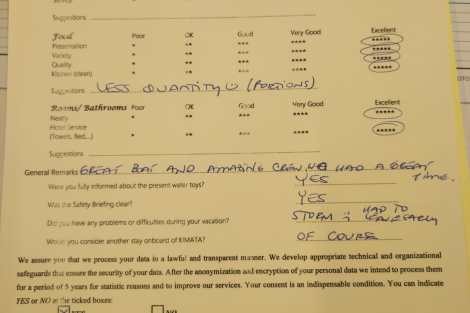 Suggestions
Food Poor OK Good Very Good Excellent
Presentation * ** *** **** *****
Variety * ** *** **** *****
Quality * ** *** **** *****
Kitchen (clean) * ** *** **** *****
Suggestions LESS QUANTITY (PORTIONS)
Rooms/ Bathrooms Poor OK Good Very Good Excellent
Neatly * ** *** **** *****
Hotel Service
(Towels, Bed,..) * ** *** **** *****
Suggestions
General Remarks GREAT BOAT AND AMAZING CREW. WE HAD A GREAT TIME.
Were you fully informed about the present water toys? YES
Was the Safety Briefing clear? YES
Did you have any problems or difficulties during your vacation? STORM ; HAD TO LEAVE EARLY
Would you consider another stay onboard of KIMATA? OF COURSE
We assure you that we process your data in a lawful and transparent manner. We develop appropriate technical and organizational
safeguards that ensure the security of your data. After the anonymization and encryption of your personal data we intend to process them
for a period of 5 years for statistic reasons and to improve our services. Your consent is an indispensable condition. You can indicate
YES or NO in the ticked boxes:
YES NO